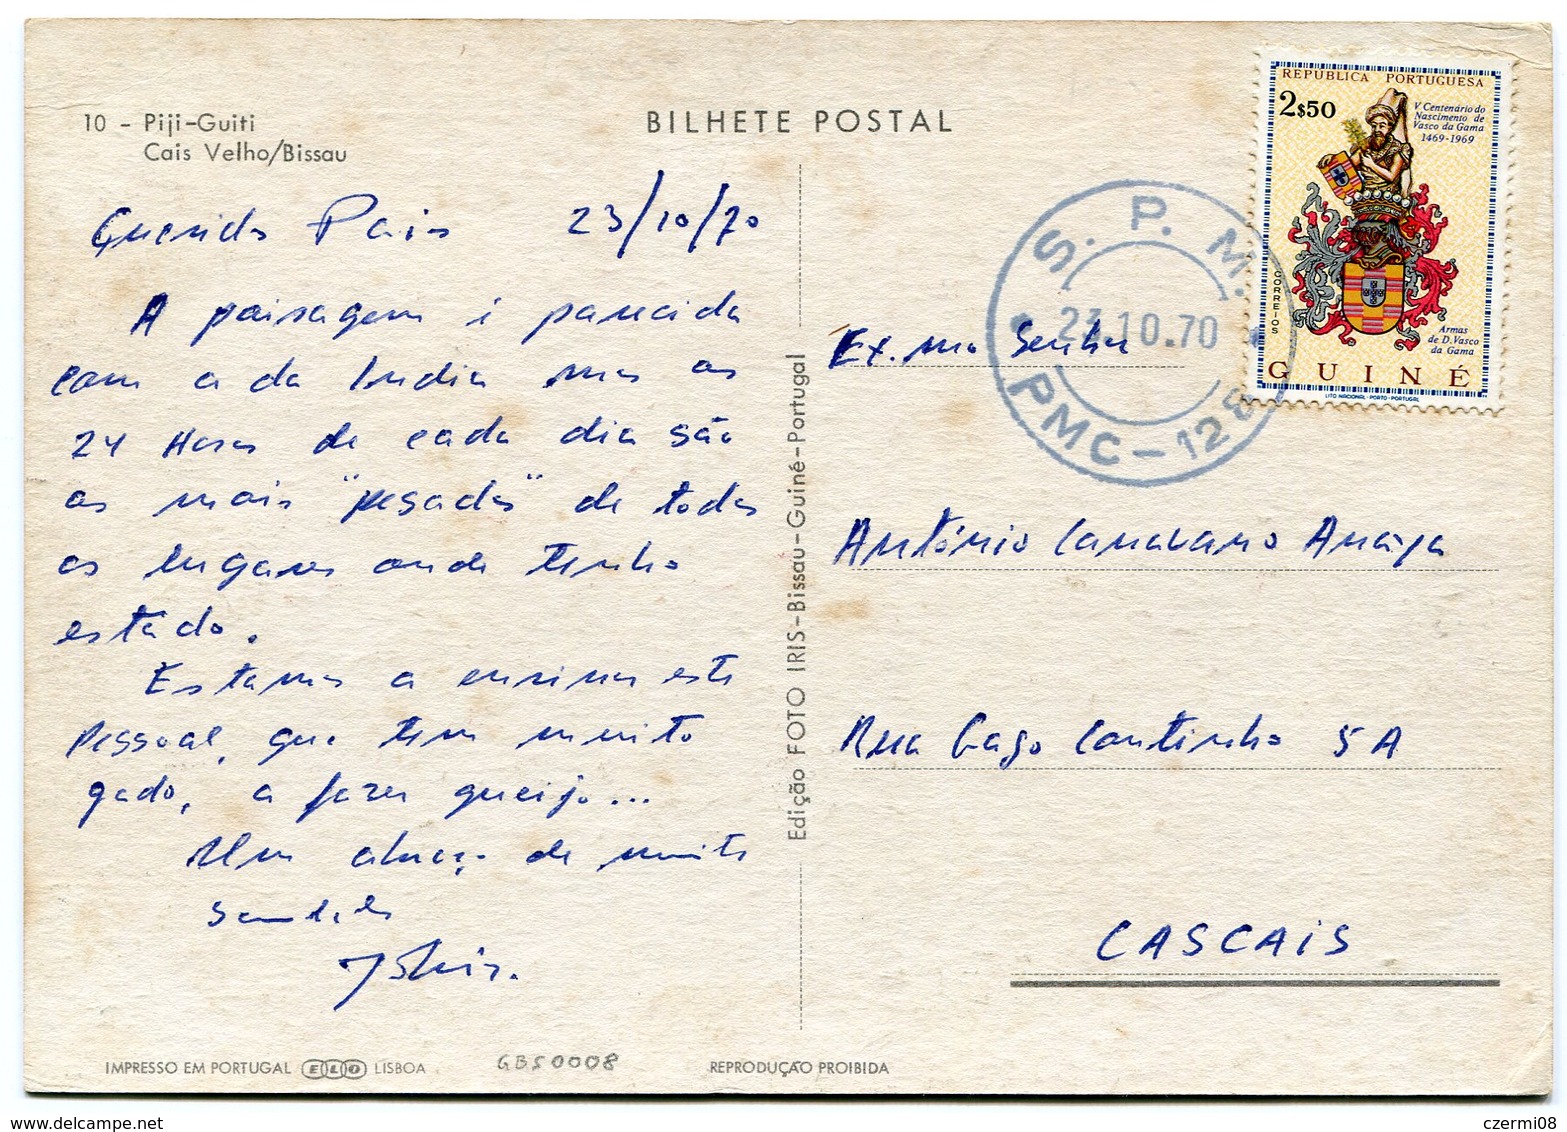 10 - Piji-Guiti
Cais Velho/Bissau
BILHETE POSTAL
Queridos Pais 23/10/70
A paisagem é parecida
com a da India mas as
24 Horas de cada dia são
as mais "pesadas" de todos
os lugares onde tenho
estado.
Estamos a ensinar este
pessoal, que tem muito
gado, a fazer queijo...
Um abraço de muitas
saudades
REPUBLICA PORTUGUESA
2$50
V Centenário do
Nascimento de
Vasco da Gama
1469-1969
CORREIOS
Armas
de D. Vasco
da Gama
GUINÉ
LITO NACIONAL - PORTO - PORTUGAL
S. P. M.
23.10.70
PMC-128
Ex.mo Senhor
António Cannavarro Araya
Rua Gago Coutinho 5A
CASCAIS
Edição FOTO IRIS-Bissau-Guiné-Portugal
IMPRESSO EM PORTUGAL ELO LISBOA
GBS0008
REPRODUÇÃO PROIBIDA
www.delcampe.net
czermi08